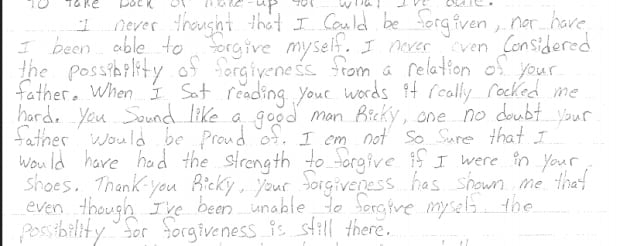 to take back or make-up for what I've done.
I never thought that I Could be forgiven, nor have
I been able to forgive myself. I never even Considered
the possibility of forgiveness from a relation of your
father. When I Sat reading your words it really rocked me
hard. You Sound like a good man Ricky, one no doubt your
father would be proud of. I am not So Sure that I
would have had the strength to forgive if I were in your
Shoes. Thank-you Ricky, your forgiveness has Shown me that
even though I've been unable to forgive myself the
possibility for forgiveness is still there.